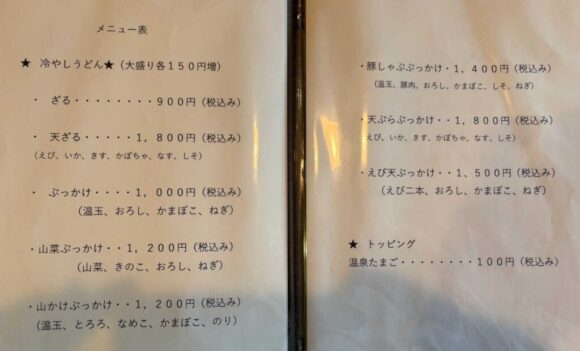 メニュー表
★ 冷やしうどん★(大盛り各150円増)
・ ざる・・・・・・・・900円(税込み)
・ 天ざる・・・・・1,800円(税込み)
(えび、いか、きす、かぼちゃ、なす、しそ)
・ ぶっかけ・・・・1,000円(税込み)
(温玉、おろし、かまぼこ、ねぎ)
・山菜ぶっかけ・・1,200円(税込み)
(山菜、きのこ、おろし、ねぎ)
・山かけぶっかけ・・1,200円(税込み)
(温玉、とろろ、なめこ、かまぼこ、のり)
・豚しゃぶぶっかけ・1,400円(税込み)
(温玉、豚肉、おろし、かまぼこ、しそ、ねぎ)
・天ぷらぶっかけ・・1,800円(税込み)
(えび、いか、きす、かぼちゃ、なす、しそ)
・えび天ぶっかけ・・1,500円(税込み)
(えび二本、おろし、かまぼこ、ねぎ)
★ トッピング
温泉たまご・・・・・・・・100円(税込み)